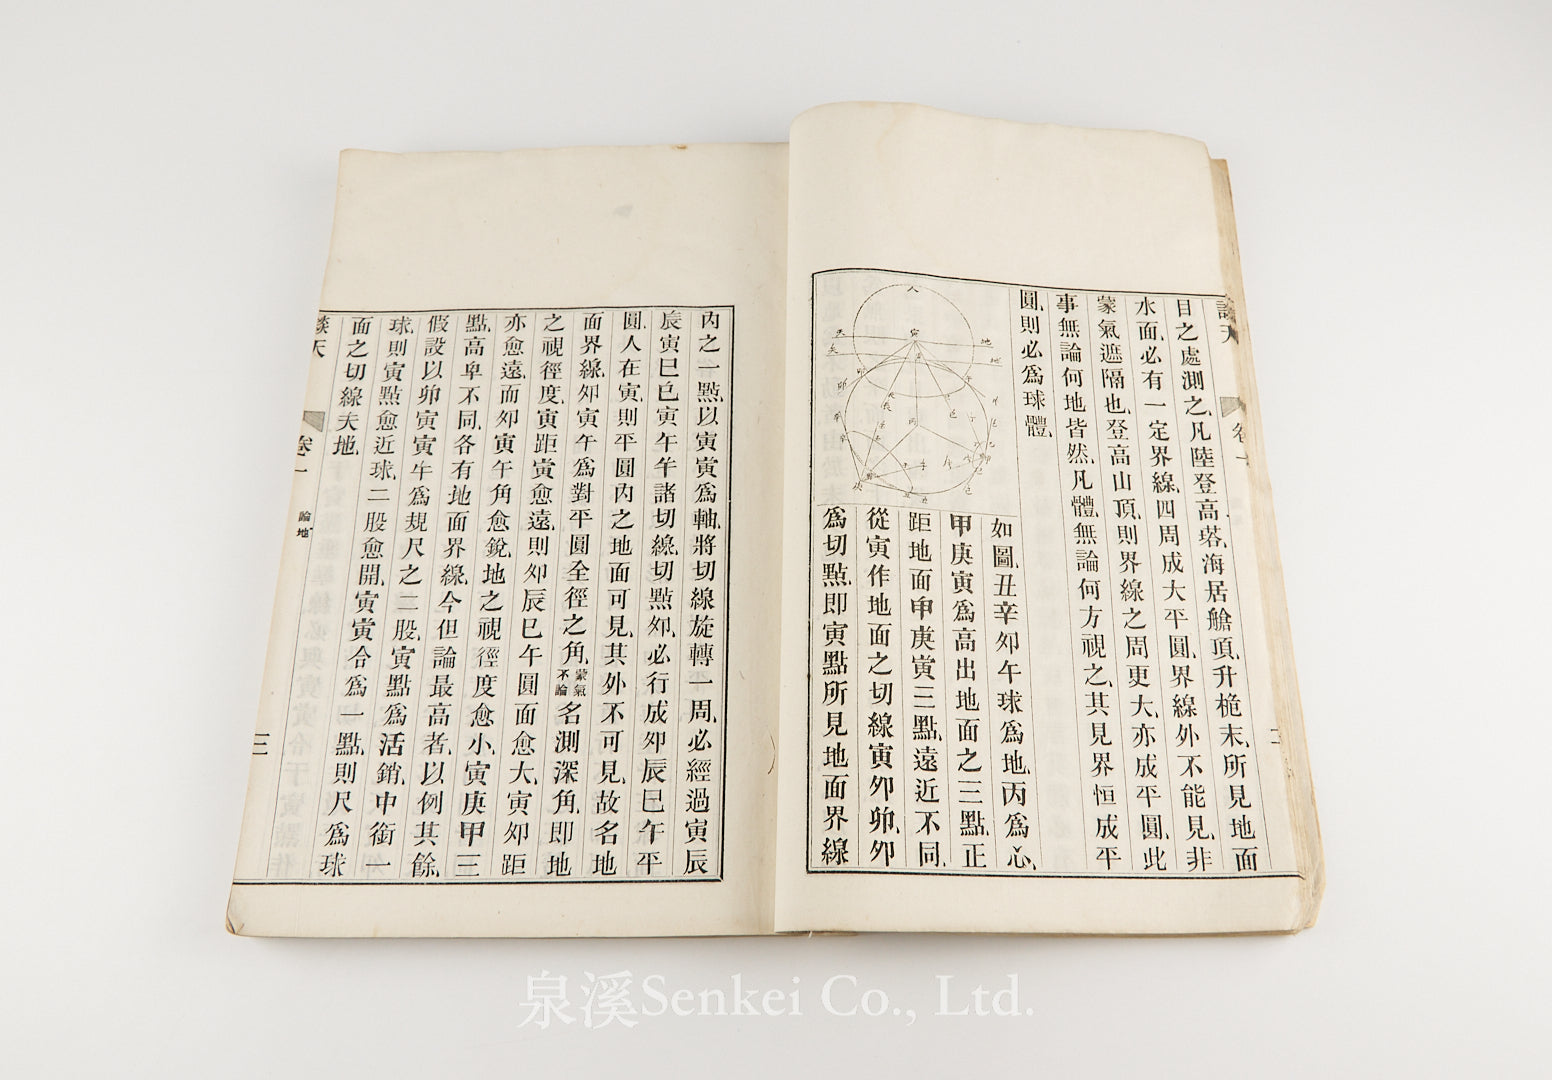 談天 卷一 二
目之處測之、凡陸登高塔、海居艙頂、升桅末、所見地面
水面、必有一定界線、四周成大平圓、界線外不能見、非
蒙氣遮隔也、登高山頂、則界線之周更大、亦成平圓、此
事無論何地皆然、凡體、無論何方視之、其見界恒成平
圓、則必爲球體、
人
寅
地
地
丙
如圖、丑辛夘午球爲地、丙爲心、
甲庚寅爲高出地面之三點、正
距地面甲庚寅三點、遠近不同、
從寅作地面之切線寅夘卯、夘
爲切點、即寅點所見地面界線
內之一點、以寅寅爲軸、將切線旋轉一周、必經過寅辰
辰寅巳巳寅午午諸切線、切點夘、必行成夘辰巳午平
圓、人在寅、則平圓內之地面可見、其外不可見、故名地
面界線、夘寅午爲對平圓全徑之角、蒙氣不論名測深角、即地
之視徑度、寅距寅愈遠、則夘辰巳午圓面愈大、寅夘距
亦愈遠、而夘寅午角愈銳、地之視徑度愈小、寅庚甲三
點、高卑不同、各有地面界線、今但論最高者、以例其餘、
假設以卯寅寅午爲規尺之二股、寅點爲活銷、中銜一
球、則寅點愈近球、二股愈開、寅寅合爲一點、則尺爲球
面之切線、夫地、
談天 卷一 論地 三
泉溪Senkei Co., Ltd.